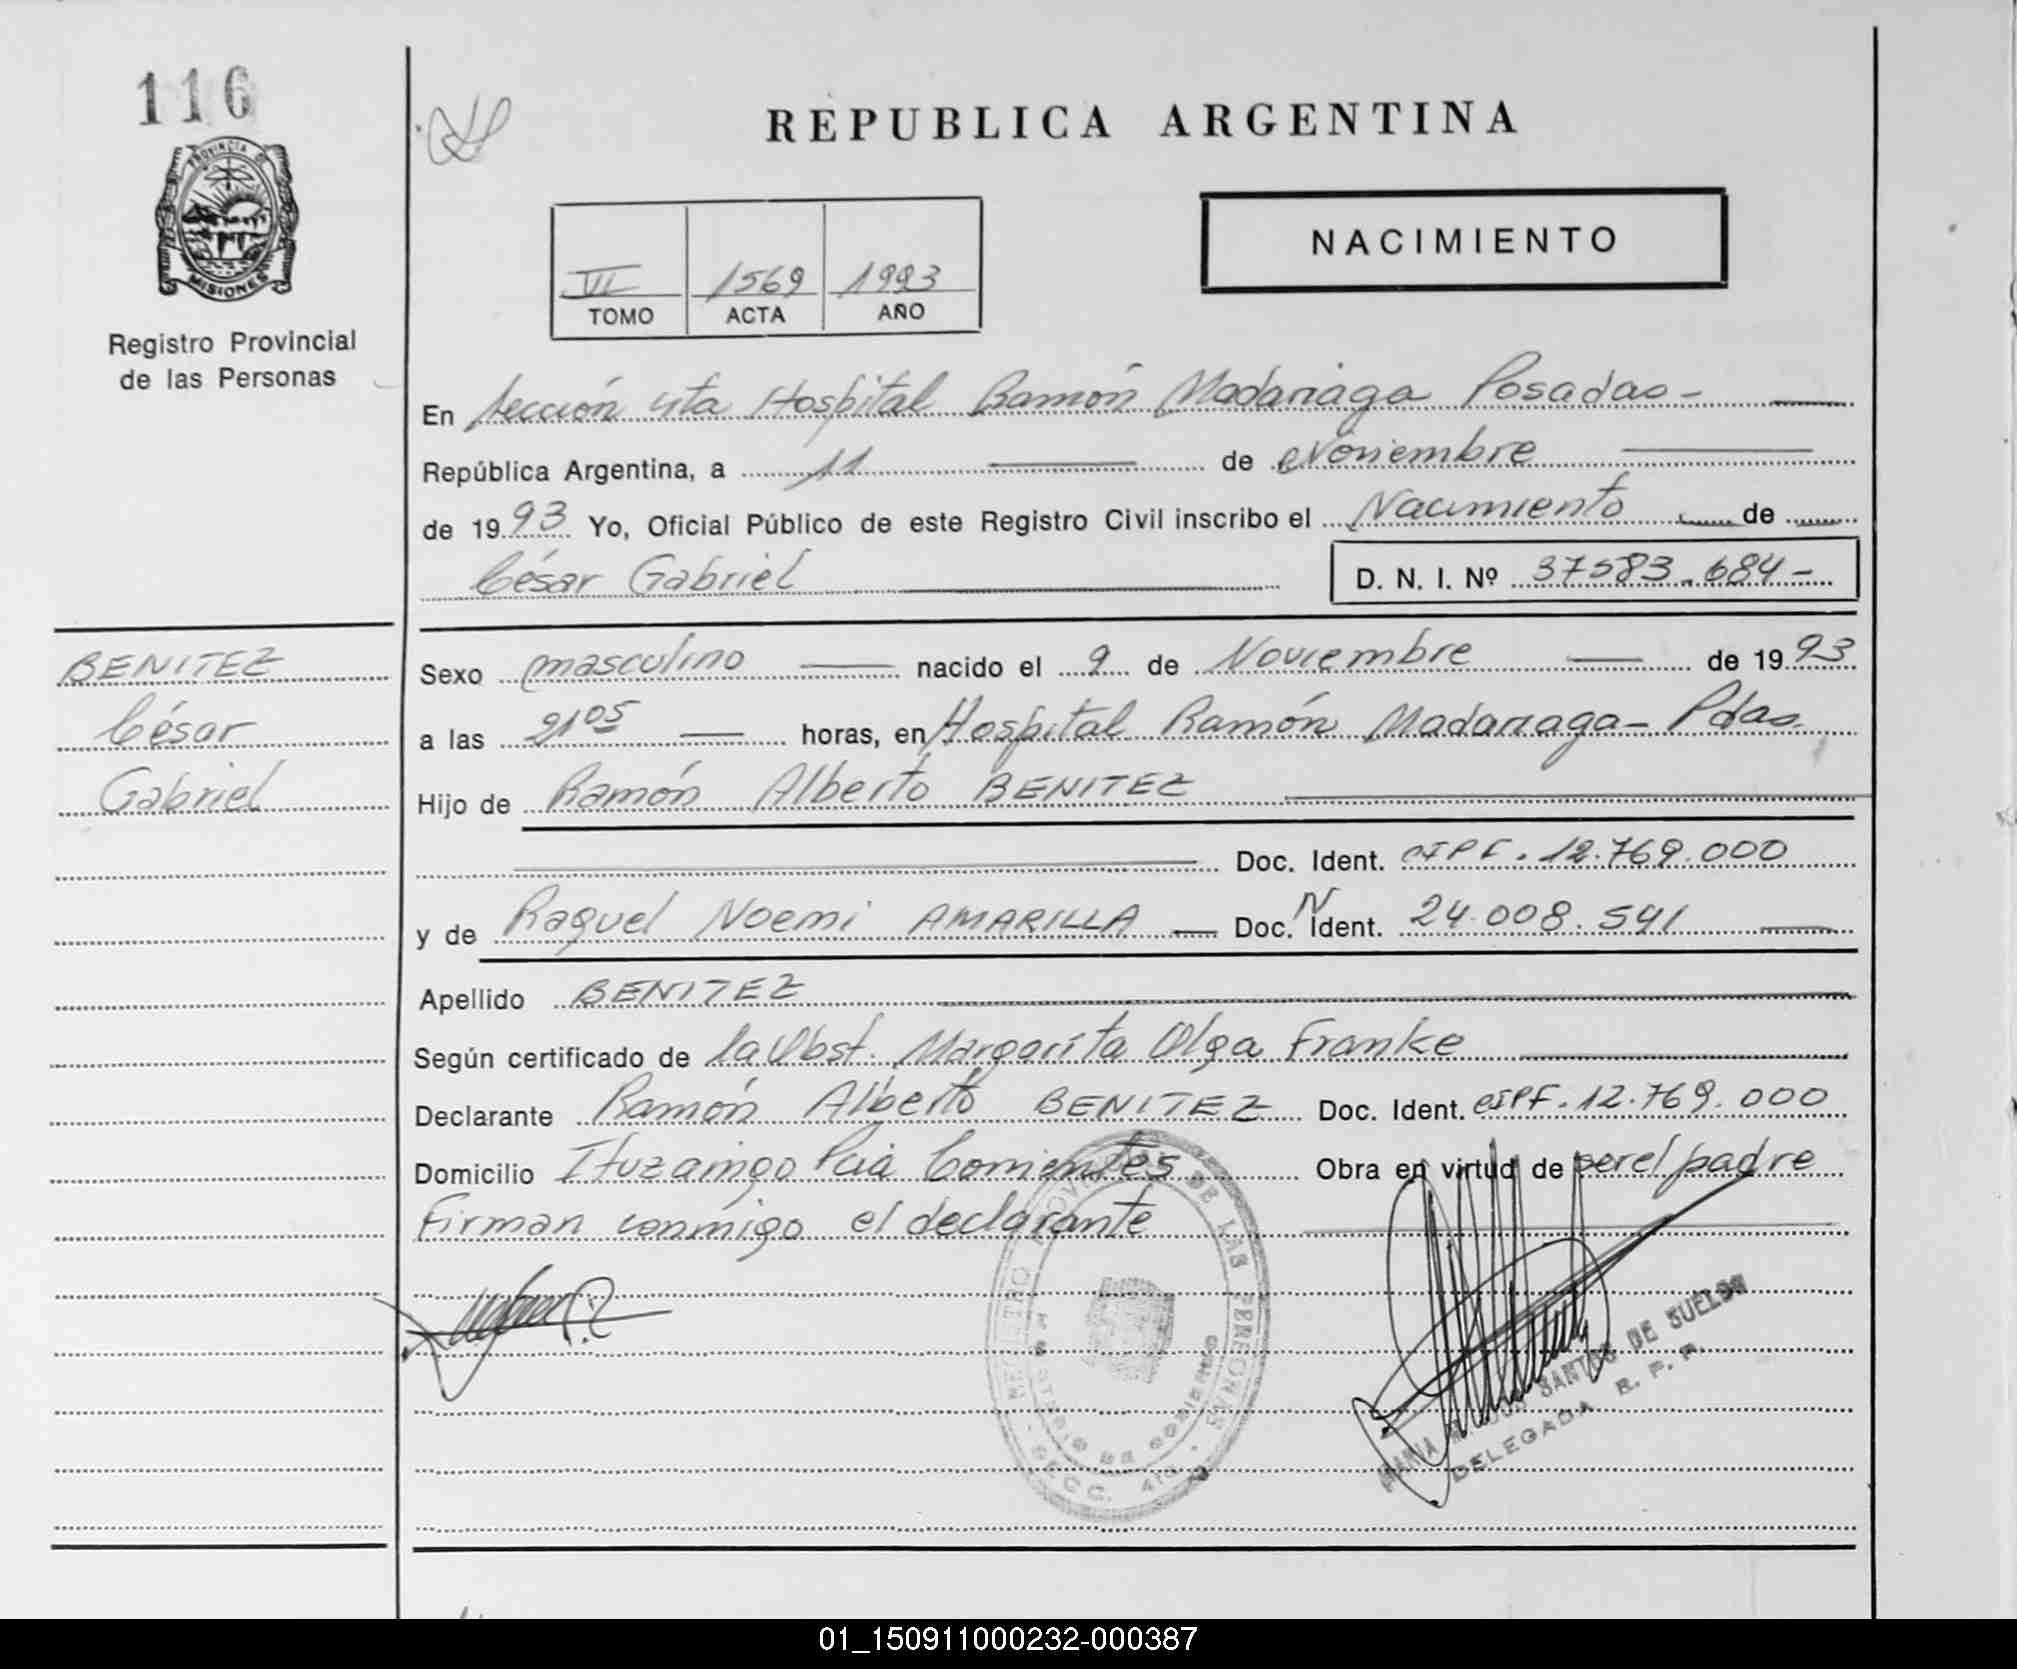 116
PROVINCIA DE
MISIONES
Registro Provincial
de las Personas
REPUBLICA ARGENTINA
NACIMIENTO
VII 1569 1993
TOMO ACTA AÑO
En Sección 4ta Hospital Ramón Madariaga Posadas-
República Argentina, a 11 de Noviembre
de 1993 Yo, Oficial Público de este Registro Civil inscribo el Nacimiento de
César Gabriel D. N. I. Nº 37583.684-
BENITEZ
César
Gabriel
Sexo masculino nacido el 9 de Noviembre de 1993
a las 21 05 horas, en Hospital Ramón Madariaga- Pdas.
Hijo de Ramón Alberto BENITEZ
Doc. Ident. CIPF. 12.769.000
y de Raquel Noemi AMARILLA Doc. N Ident. 24.008.591
Apellido BENITEZ
Según certificado de la Obst. Margarita Olga Franke
Declarante Ramón Alberto BENITEZ Doc. Ident. CIPF. 12.769.000
Domicilio Ituzaingo Pcia Corrientes Obra en virtud de ser el padre
Firman conmigo el declarante
REGISTRO PROVINCIAL DE LAS PERSONAS
MINISTERIO DE GOBIERNO
SECC. 4ta
SANTOS DE SUELOS
DELEGADA R. P. P.
01_150911000232-000387